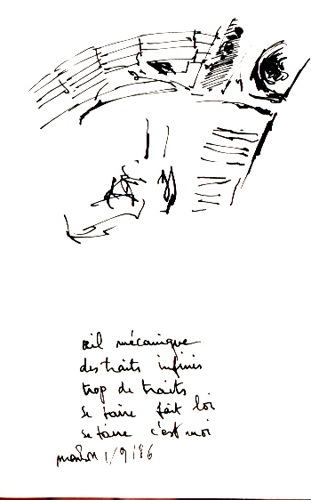 œil mécanique
des traits infinis
trop de traits
se taire fait loi
se taire c'est moi
1/9/86